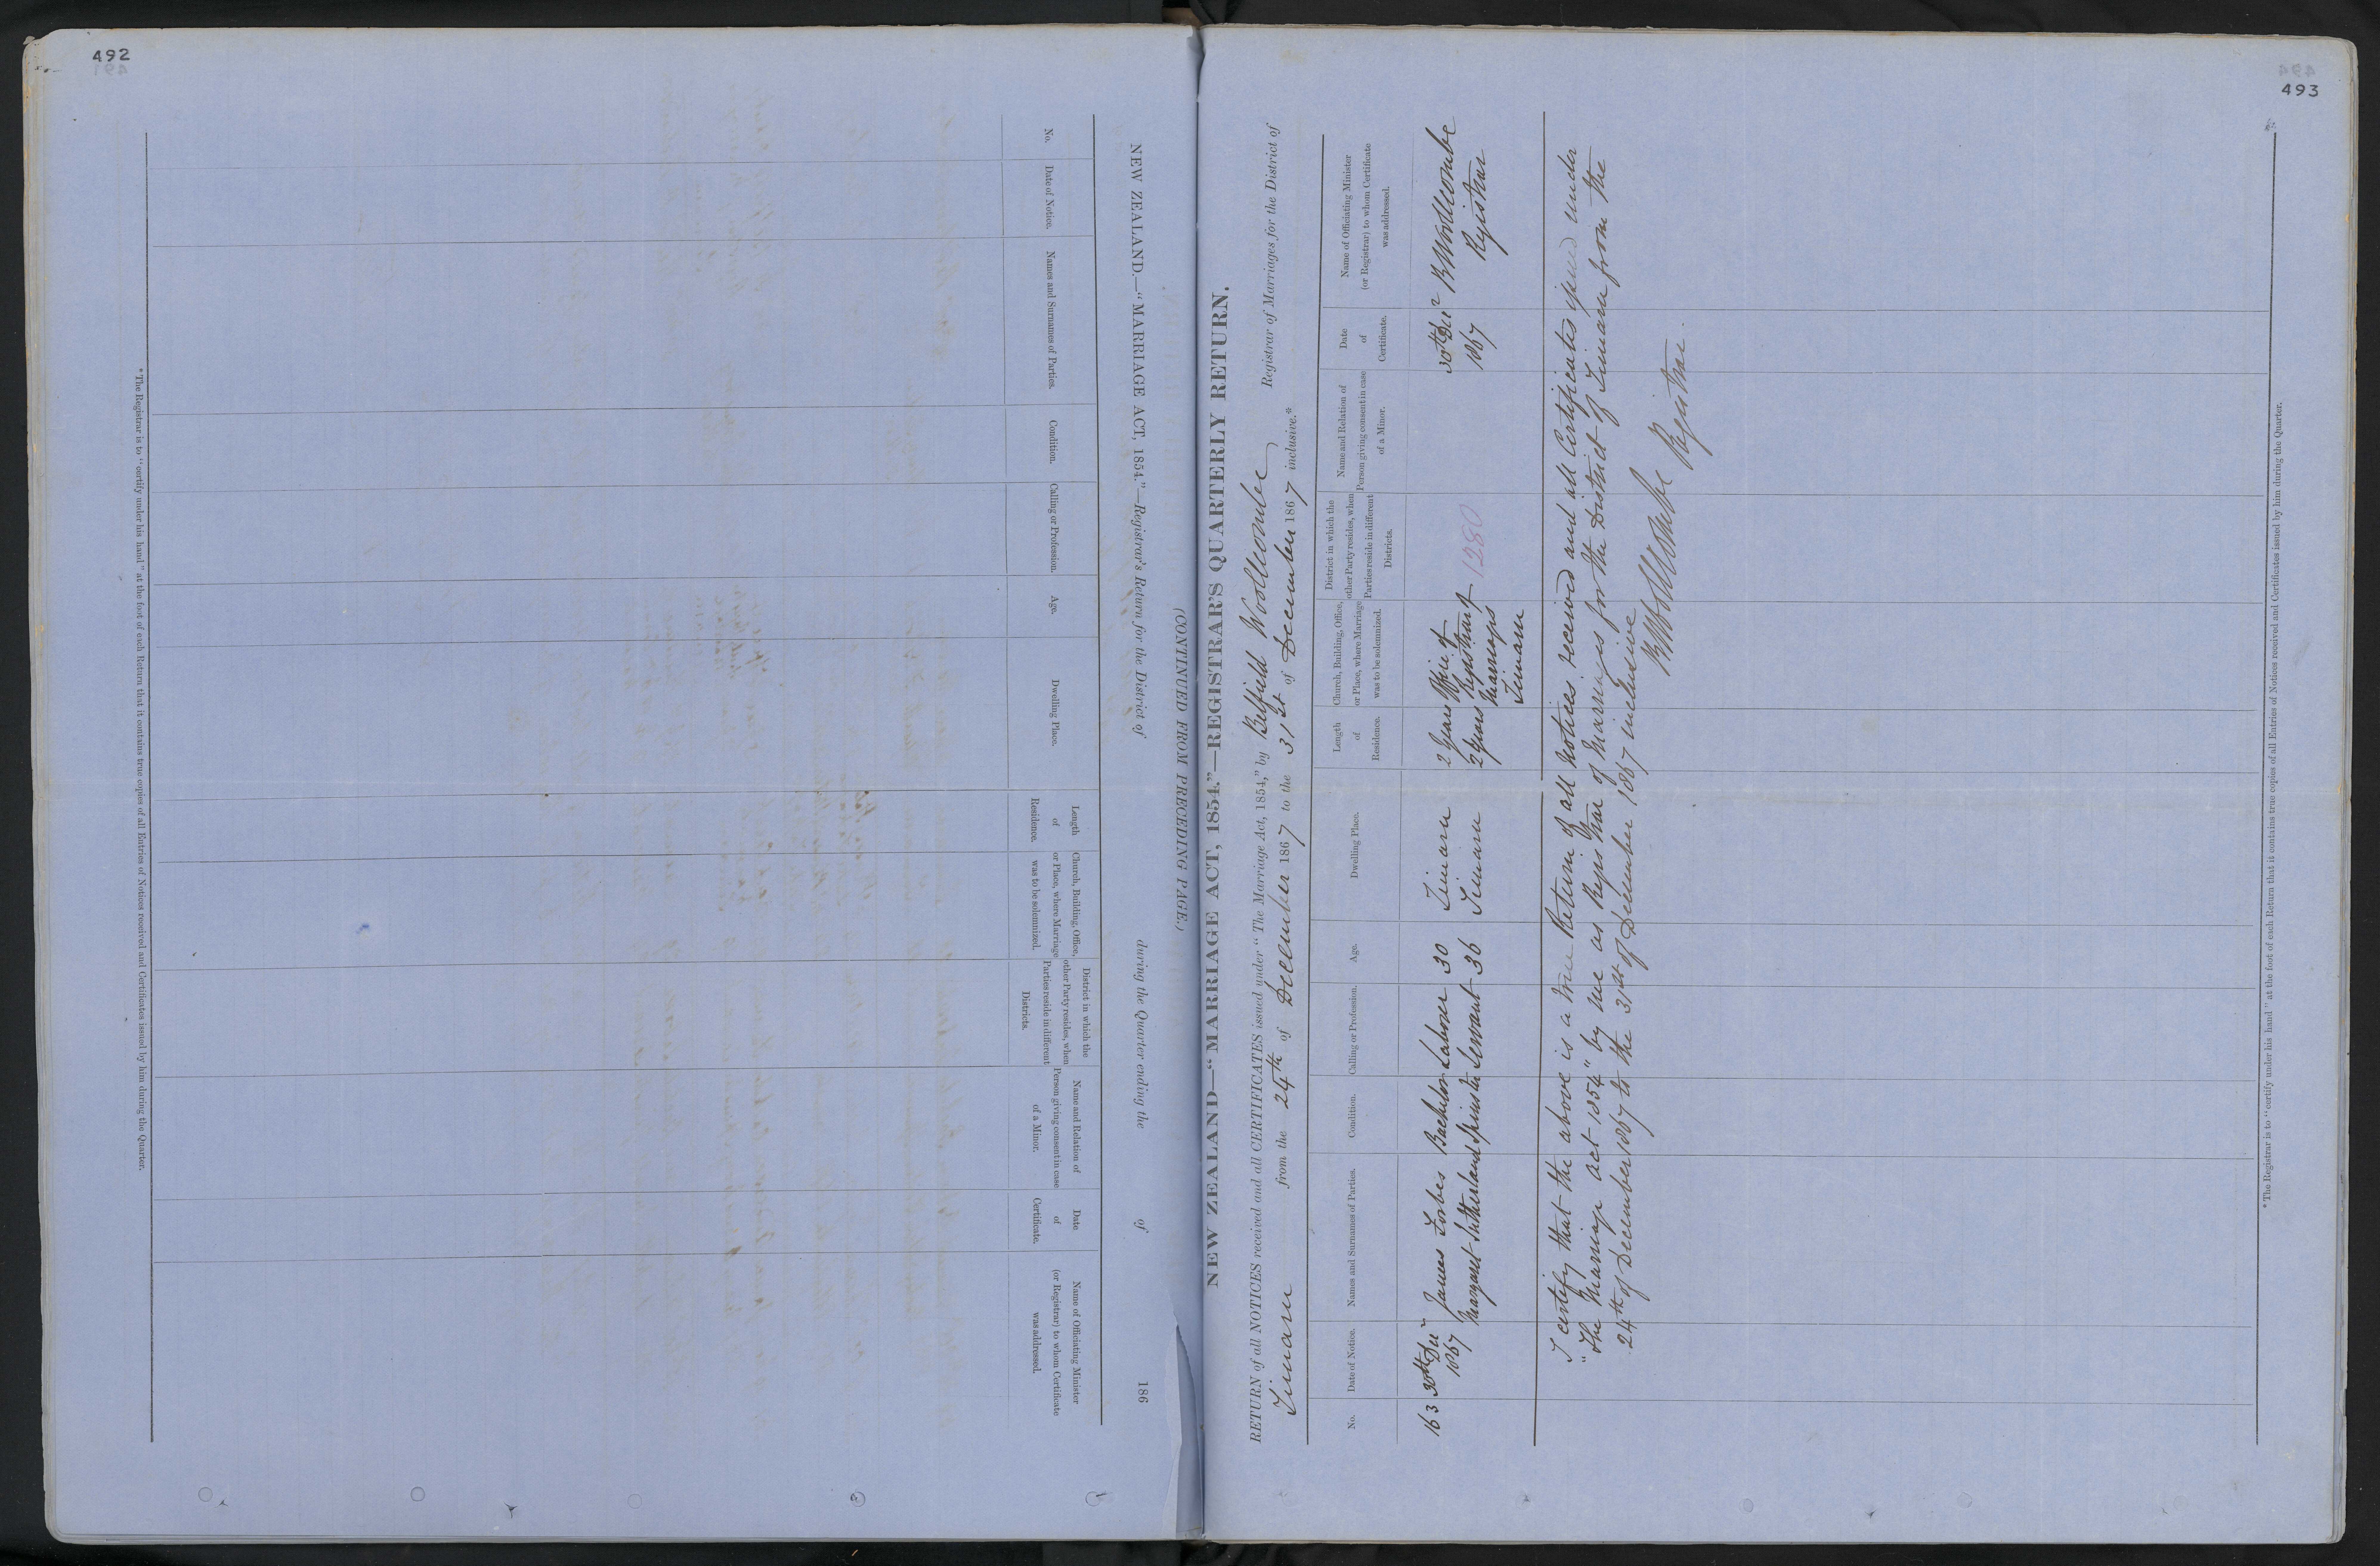 492
NEW ZEALAND.—"MARRIAGE ACT, 1854."—Registrar's Return for the District of during the Quarter ending the of 186
(CONTINUED FROM PRECEDING PAGE.)
No.
Date of Notice.
Names and Surnames of Parties.
Condition.
Calling or Profession.
Age.
Dwelling Place.
Length
of
Residence.
Church, Building, Office,
or Place, where Marriage
was to be solemnized.
District in which the
other Party resides, when
Parties reside in different
Districts.
Name and Relation of
Person giving consent in case
of a Minor.
Date
of
Certificate.
Name of Officiating Minister
(or Registrar) to whom Certificate
was addressed.
* The Registrar is to "certify under his hand" at the foot of each Return that it contains true copies of all Entries of Notices received and Certificates issued by him during the Quarter.
493
NEW ZEALAND—"MARRIAGE ACT, 1854."—REGISTRAR'S QUARTERLY RETURN.
RETURN of all NOTICES received and all CERTIFICATES issued under "The Marriage Act, 1854," by Belfield Woollcombe Registrar of Marriages for the District of
Timaru from the 24th of December 1867 to the 31st of December 1867 inclusive.*
No.
Date of Notice.
Names and Surnames of Parties.
Condition.
Calling or Profession.
Age.
Dwelling Place.
Length
of
Residence.
Church, Building, Office,
or Place, where Marriage
was to be solemnized.
District in which the
other Party resides, when
Parties reside in different
Districts.
Name and Relation of
Person giving consent in case
of a Minor.
Date
of
Certificate.
Name of Officiating Minister
(or Registrar) to whom Certificate
was addressed.
163 30th Dec James Forbes Bachelor Laborer 30 Timaru 2 years Office of 30th Dec B Woollcombe
1867 Margaret Sutherland Spinster Servant 36 Timaru 2 years Registrar of 1280 1867 Registrar
Marriages
Timaru
I certify that the above is a true Return of all notices received and all Certificates issued under
"The Marriage act 1854" by me as Registrar of Marriages for the District of Timaru from the
24th of December 1867 to the 31st of December 1867 inclusive
B Woollcombe Registrar.
* The Registrar is to "certify under his hand" at the foot of each Return that it contains true copies of all Entries of Notices received and Certificates issued by him during the Quarter.